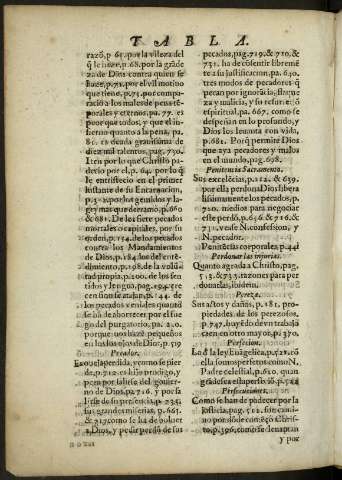 TABLA.
razõ, p 65. por la vileza del
q̃ le haze, p.68. por la grãde
za de Dios contra quien se
haze, p.71. por el vil motiuo
que tiene, p.75. por compa-
ració a los males de pena tẽ-
porales y eternos, pa. 77. es
peor que todos, y que el in-
fierno quanto a la pena, pa.
80. es deuda grauissima de
diez mil talentos, pag. 730.
Itẽ por lo que Christo pa-
decio por el, p. 64. por lo q̃
le entristecio en el primer
instante de su Encarnacion,
por los gemidos y la-
grymas que derramo, p.660
& 681. De los siete pecados
mortales o capitales, por su
orden, p.134. de los pecados
contra los Mandamientos
de Dios, p.184. los del entẽ-
dimiento, p.198. de la volũ-
tad propia, p.200. de los sen-
tidos y lengua, pag.194. &re
cencion se atajã, p.144. de
los pecados veniales quanto
se hã de aborrecer por el fue
go del purgatorio, pa. 210.
porque nos auemos de hu-
en los ojos de Dios, p.519
Pecador.
Es oueja perdida, y como se pier
de, p.712. es hijo prodigo, y
pena por salirse del gouier-
no de Dios, p.716. y por sa
lirse de su presencia, p. 235.
sus grandes miserias, p. 661.
& 717. como se ha de boluer
a Dios, y pedir perdõ de sus
pecados, pag.719. & 710. &
731. ha de cõsentir libremẽ
te a su justificacion, pa. 640.
tres modos de pecadores q̃
pecan por ignorãcia, flaque
za y malicia, y su resurreciõ
espiritual, pa. 667. como se
despeñan en lo profundo, y
Dios los leuanta con vida,
p.681. Porq̃ permite Dios
que aya pecadores y malos
en el mundo, pag. 698.
Penitencia Sacramento.
Sus excelẽcias, p.112. & 639.
por ella perdona Dios libera
lissimamente los pecados, p.
720. medios para negociar
este perdõ, p.656 & 716. &
731. vease N. confession, y
N. pecador.
Penitẽcia corporales, p. 441
Perdonar las injurias.
Quanto agrada a Christo, pag
515. & 733. razones para per
donarlas, ibidem.
Pereza.
Sus actos y daños, p. 181. pro-
piedades de los perezosos,
p.747. huyẽdo de vn trabajo
caen en otro mayor, p. 370.
Perfecion.
La de la ley Euãgelica, p.521. cõ
ella somos perfetos como N.
Padre celestial, p.620. quan
Persecuciones.
Como se han de padecer por la
justicia, pag. 512. este cami-
no por dõde comẽçó Chris-
to, p.396. como se leuantan
y por